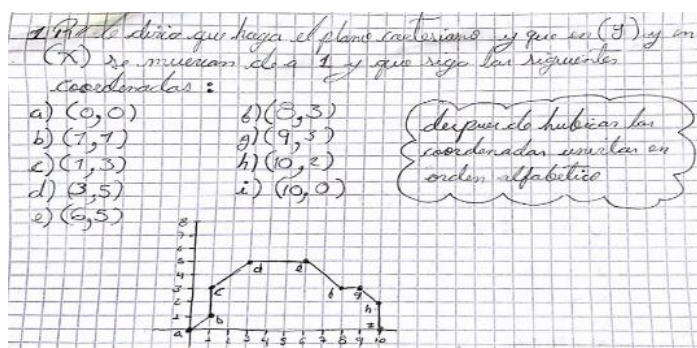 le diria que haga el plano cartesiano y que en (y) y en
(X) se muevan de a 1 y que siga las siguientes
coordenadas :
a) (0,0)
b) (1,1)
c) (1,3)
d) (3,5)
e) (6,5)
f) (8,3)
g) (9,3)
h) (10,2)
i) (10,0)
despues de hubicar las
coordenadas unirlas en
orden alfabético
8
7
6
5
4
3
2
1
a b c d e f g h i
1 2 3 4 5 6 7 8 9 10